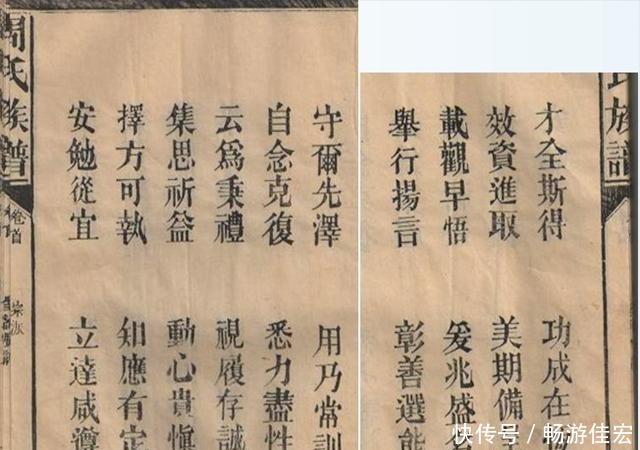 才全斯得
功成在
效資進取
美期備
載觀早悟
爰兆盛名
舉行揚言
彰善選能
氏族譜
守爾先澤
用乃常訓
自念克復
悉力盡性
云爲秉禮
視履存誠
集思祈益
動心貴愼
擇方可執
知應有定
安勉從宜
立達咸遵
周氏族譜
卷首
宗派
快传号 / 畅游佳宏